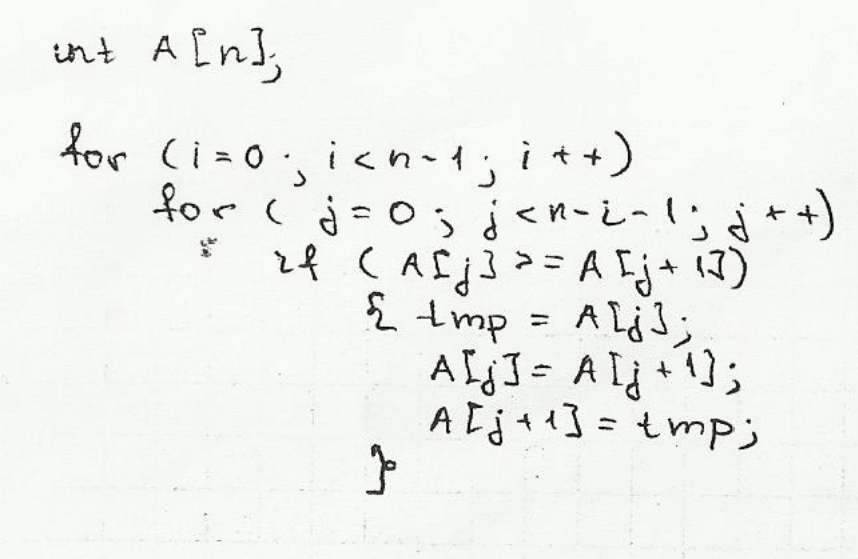 int A[n];
for (i=0; i<n-1; i++)
for ( j=0; j<n-i-1; j++)
if ( A[j] >= A[j+1])
{ tmp = A[j];
A[j]= A[j+1];
A[j+1] = tmp;
}